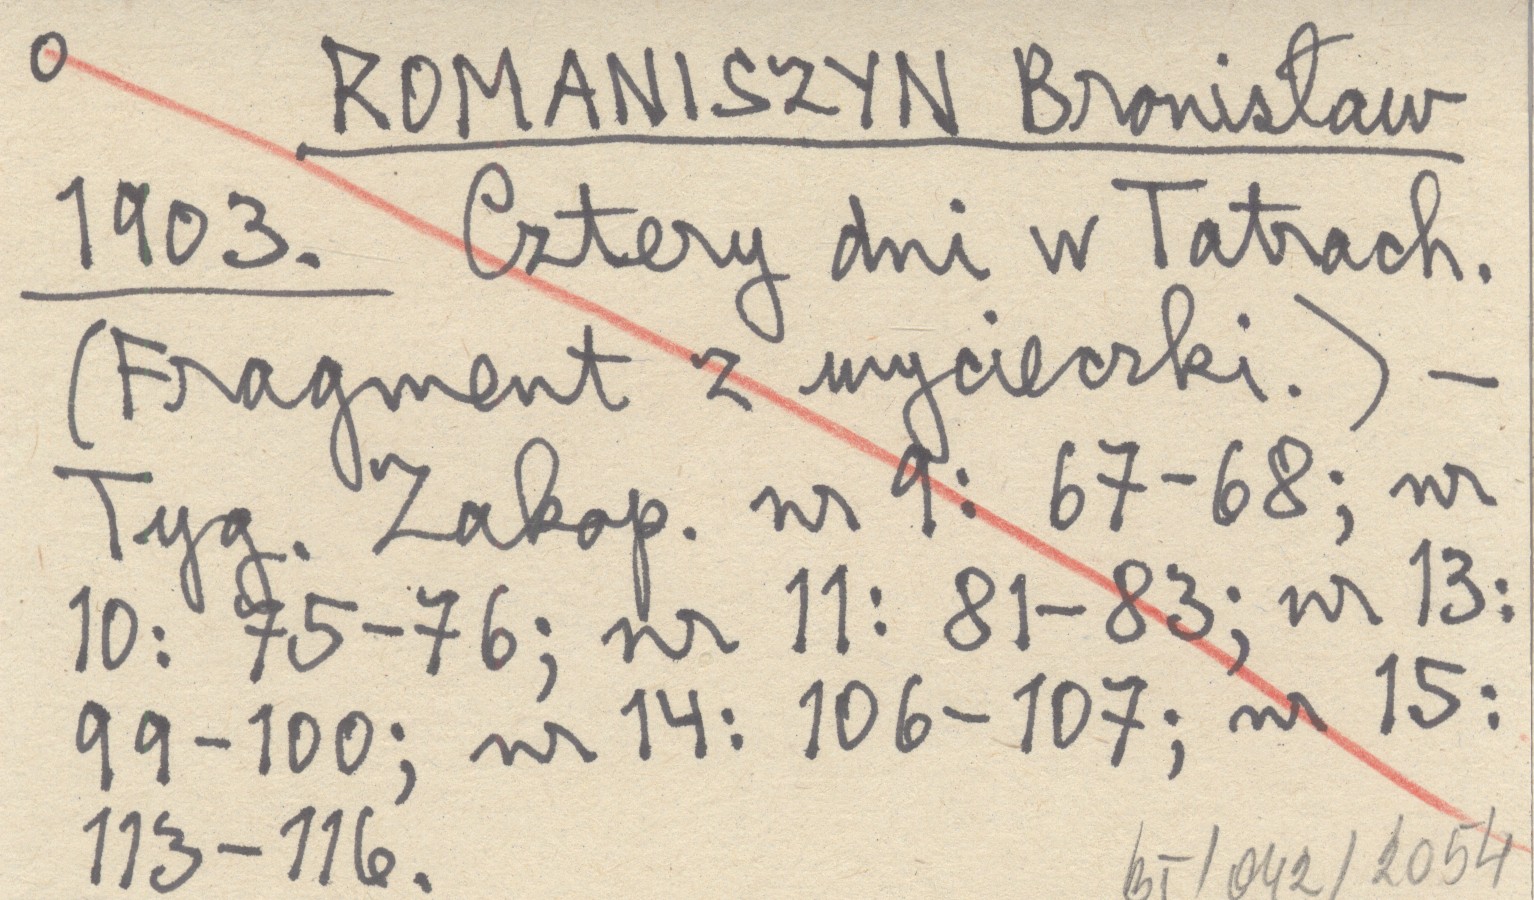 O ROMANISZYN Bronisław
1903. Cztery dni w Tatrach.
(Fragment z wycieczki.) –
Tyg. Zakop. nr 9: 67-68; nr
10: 75-76; nr 11: 81-83; nr 13:
99-100; nr 14: 106-107; nr 15:
113-116.
BT/042/2054